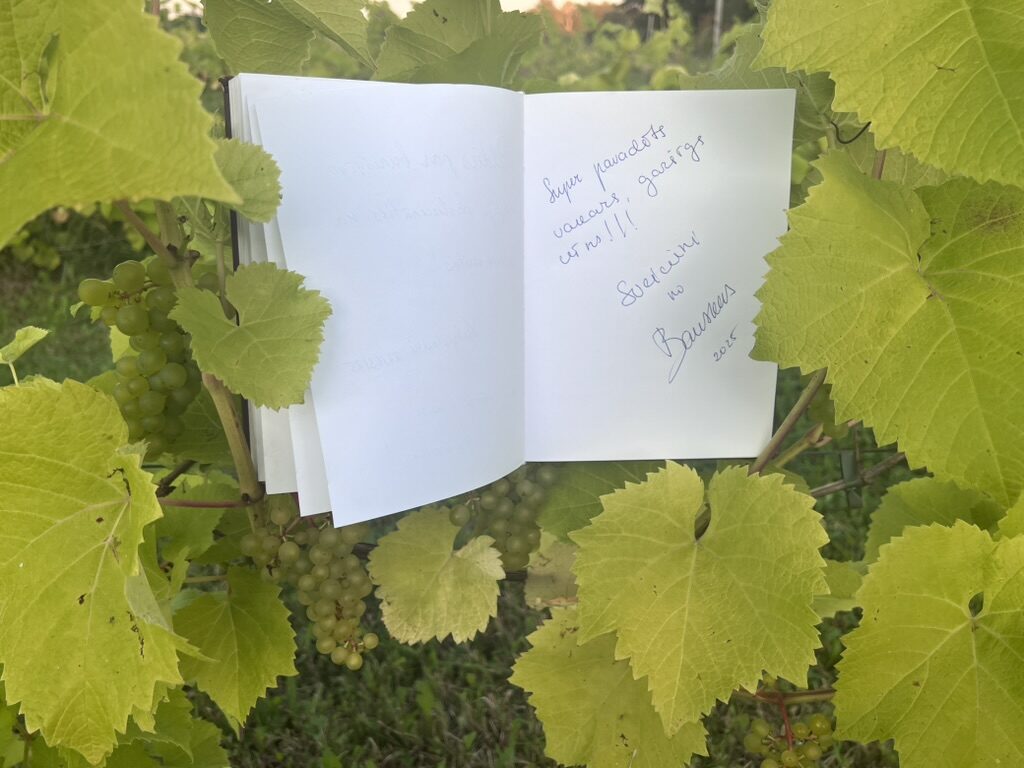 Super pavadīts
vakars, garīgs
vīns!!!
Sveicieni
no
Bauskas
2025